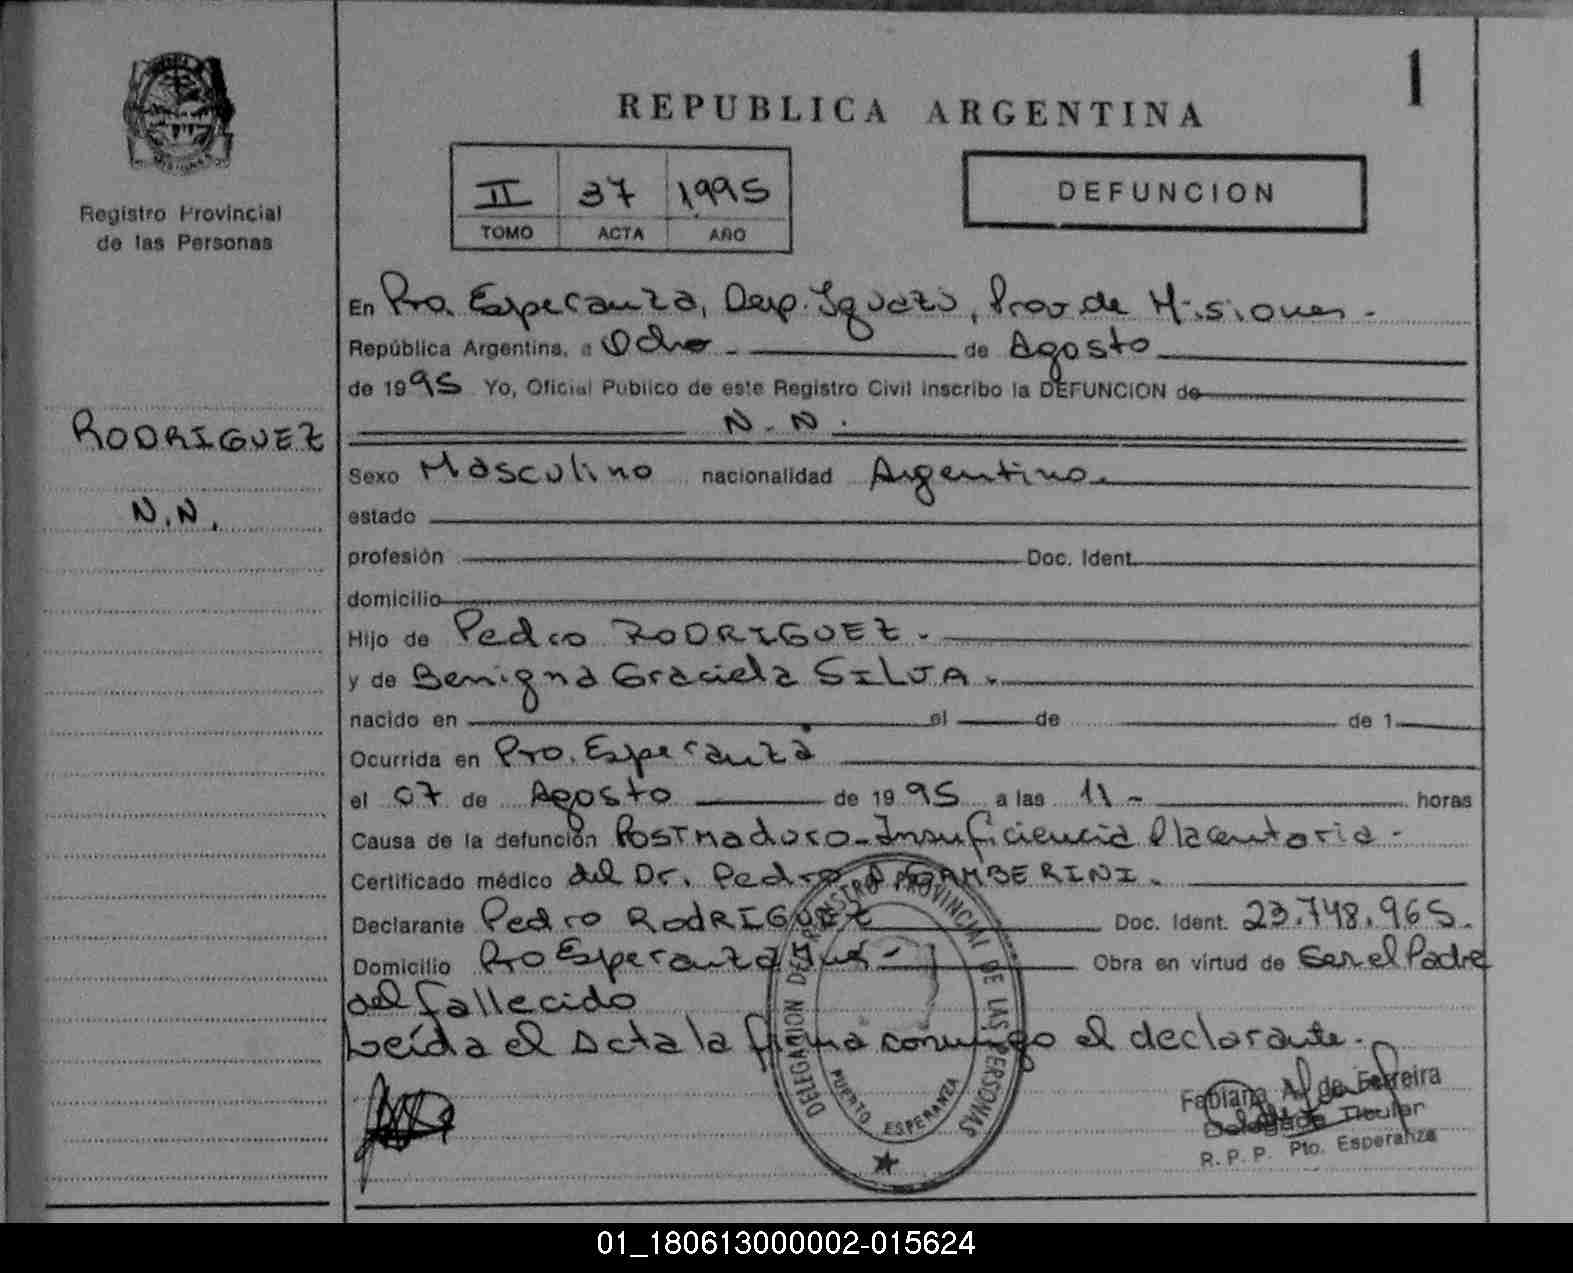 1
REPUBLICA ARGENTINA
II 37 1995
TOMO ACTA AÑO
DEFUNCION
MISIONES
Registro Provincial
de las Personas
RODRIGUEZ
N.N.
En Pto. Esperanza, Dep. Iguazú, Prov de Misiones -
República Argentina, a Ocho - de Agosto
de 1995 Yo, Oficial Publico de este Registro Civil inscribo la DEFUNCION de
N.N.
Sexo Masculino nacionalidad Argentino.
estado
profesión Doc. Ident.
domicilio
Hijo de Pedro RODRIGUEZ.
y de Benigna Graciela SILVA.
nacido en el de de 1
Ocurrida en Pto. Esperanza
el 07 de Agosto de 1995 a las 11 - horas
Causa de la defunción Postmaduro - Insuficiencia Placentaria -
Certificado médico del Dr. Pedro GAMBERINI.
Declarante Pedro RodRIGUEZ Doc. Ident. 23.748.965.
Domicilio Pto Esperanza - Obra en virtud de Ser el Padre
del fallecido
Leída el Acta la firma conmigo el declarante.
DELEGACION DEL REGISTRO PROVINCIAL DE LAS PERSONAS
PUERTO ESPERANZA
Fabiana A. de Ferreira
Delegada Titular
R. P. P. Pto. Esperanza
01_180613000002-015624